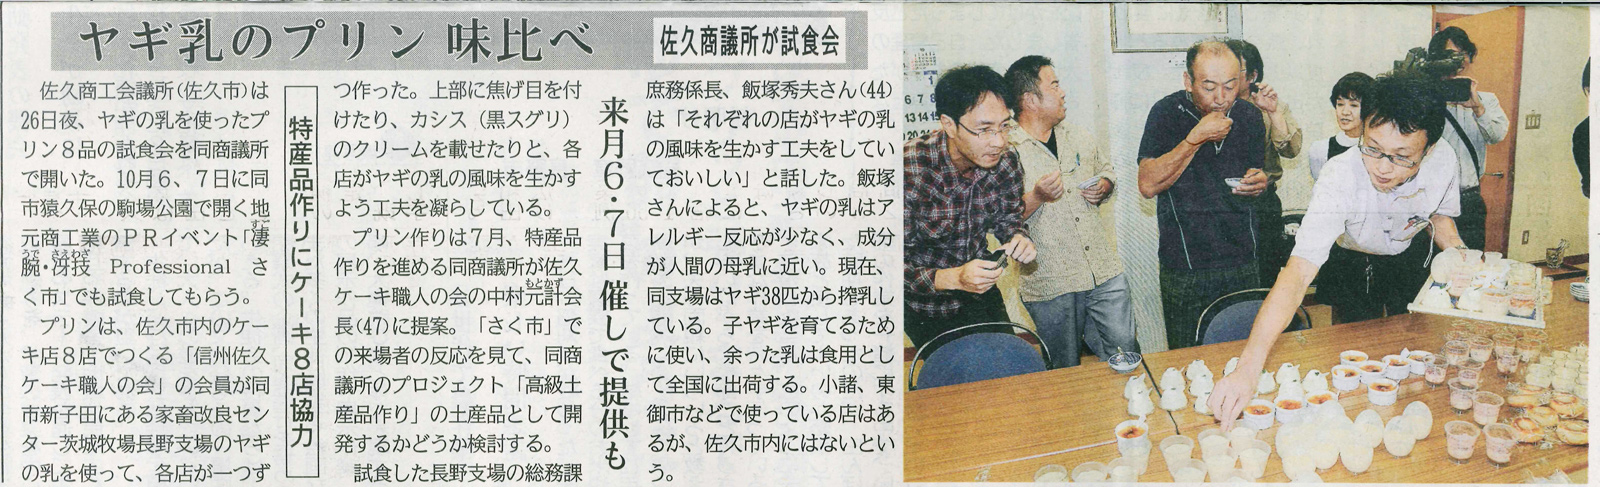 ヤギ乳のプリン 味比べ
佐久商議所が試食会
佐久商工会議所(佐久市)は
26日夜、ヤギの乳を使ったプ
リン８品の試食会を同商議所
で開いた。10月６、７日に同
市猿久保の駒場公園で開く地
元商工業のＰＲイベント「凄
腕・冴技 Professional さ
く市」でも試食してもらう。
プリンは、佐久市内のケー
キ店８店でつくる「信州佐久
ケーキ職人の会」の会員が同
市新子田にある家畜改良セン
ター茨城牧場長野支場のヤギ
の乳を使って、各店が一つず
特産品作りにケーキ８店協力
つ作った。上部に焦げ目を付
けたり、カシス（黒スグリ）
のクリームを載せたりと、各
店がヤギの乳の風味を生かす
よう工夫を凝らしている。
プリン作りは７月、特産品
作りを進める同商議所が佐久
ケーキ職人の会の中村元計会
長(47)に提案。「さく市」で
の来場者の反応を見て、同商
議所のプロジェクト「高級土
産品作り」の土産品として開
発するかどうか検討する。
試食した長野支場の総務課
来月６・７日催しで提供も
庶務係長、飯塚秀夫さん(44)
は「それぞれの店がヤギの乳
の風味を生かす工夫をしてい
ておいしい」と話した。飯塚
さんによると、ヤギの乳はア
レルギー反応が少なく、成分
が人間の母乳に近い。現在、
同支場はヤギ38匹から搾乳し
ている。子ヤギを育てるため
に使い、余った乳は食用とし
て全国に出荷する。小諸、東
御市などで使っている店はあ
るが、佐久市内にはないとい
う。